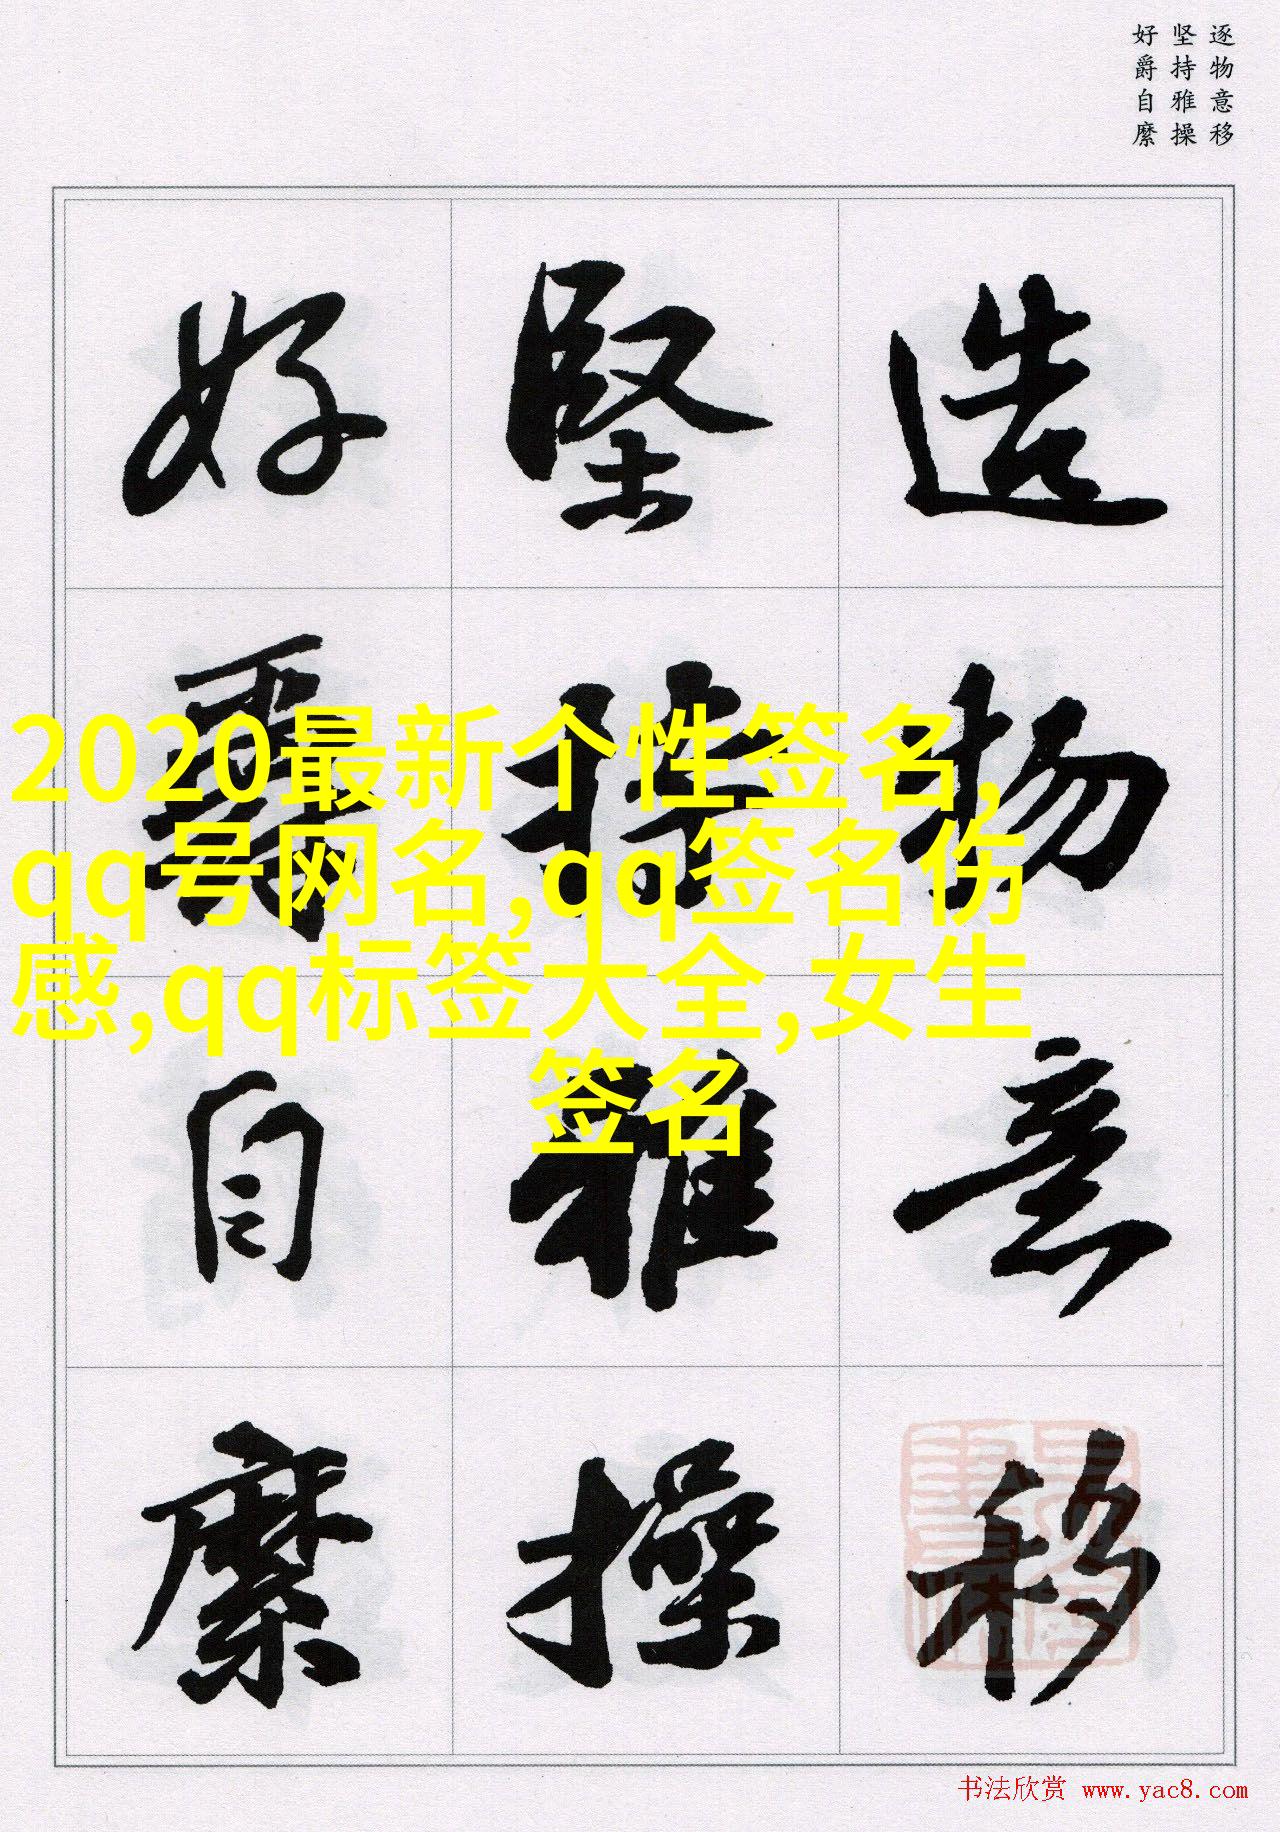 逐物意移
坚持雅操
好爵自縻
造物意移
堅持雅操
好爵自縻
2020最新个性签名,
qq号网名,qq签名伤
感,qq标签大全,女生
签名
书法欣赏 www.yac8.com